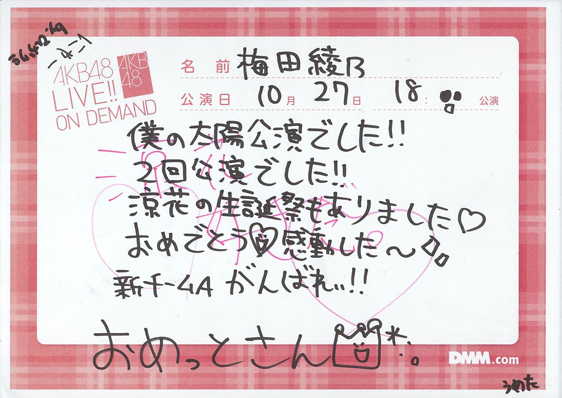 AKB48
LIVE!!
ON DEMAND
AKB
48
名前 梅田綾乃
公演日 10月 27日 18: 公演
僕の太陽公演でした!!
2回公演でした!!
涼花の生誕祭もありました♡
おめでとう♡感動した〜
新チームA がんばれぃ!!
おめっとさん
DMM.com
うめた